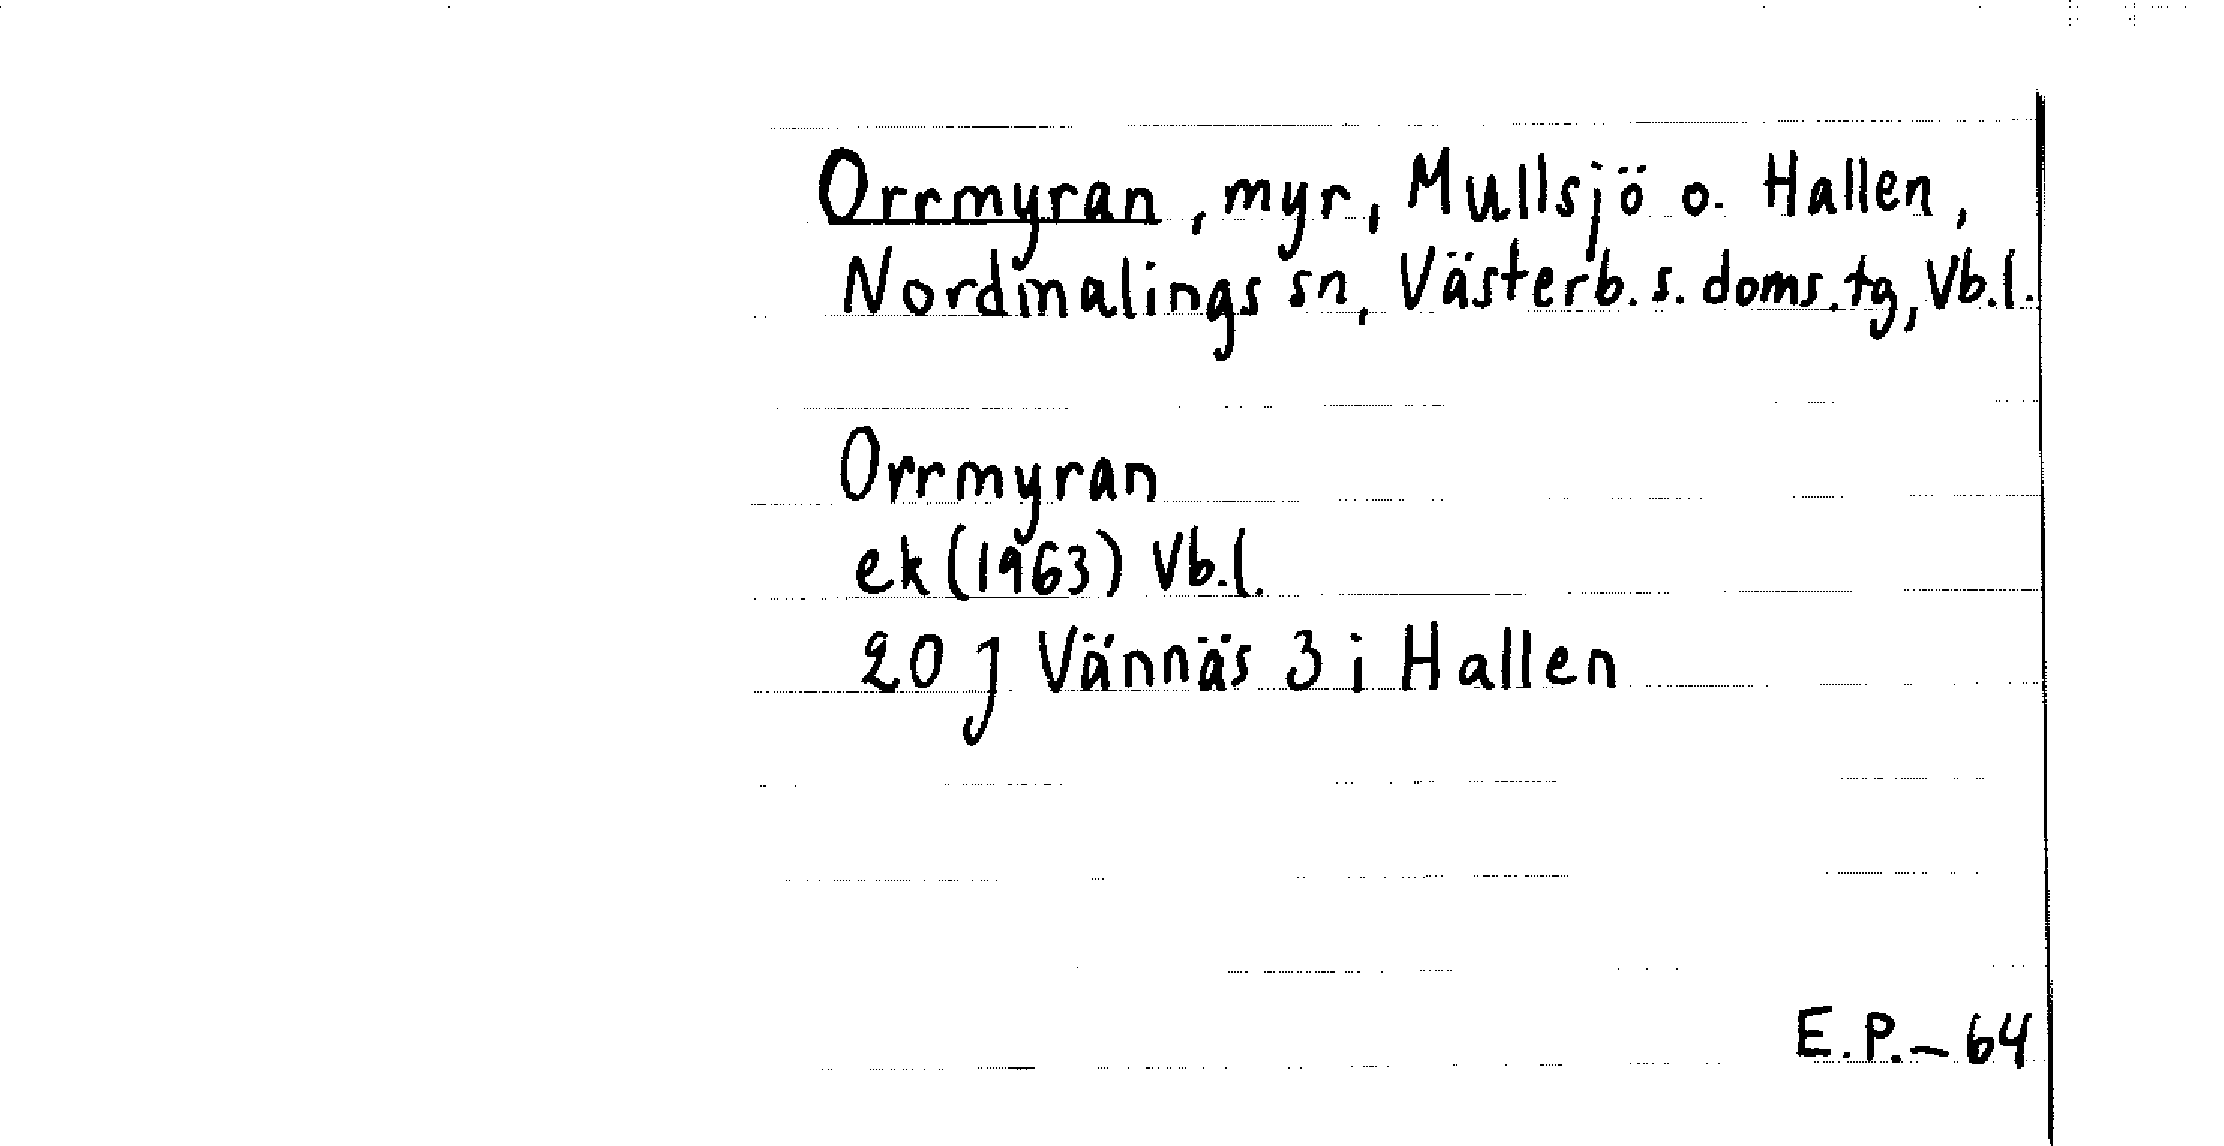 Orrmyran, myr, Mullsjö o. Hallen,
Nordmalings sn, Västerb. s. doms. tg, Vb.l.
Orrmyran
ek (1963) Vb.l.
20 J Vännäs 3 i Hallen
E.P. – 64